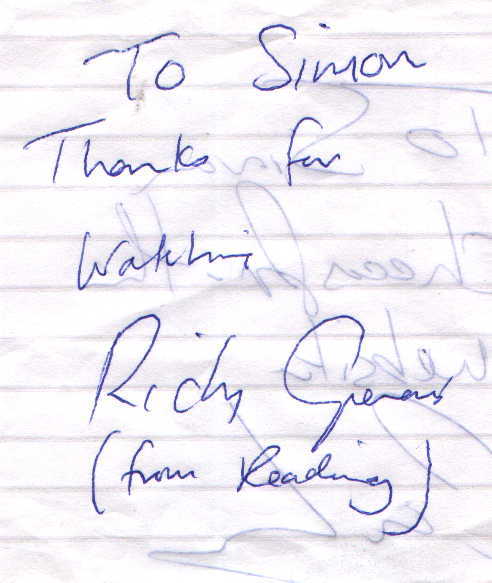 To Simon
Thanks for
watching
Ricky Gervais
(from Reading)